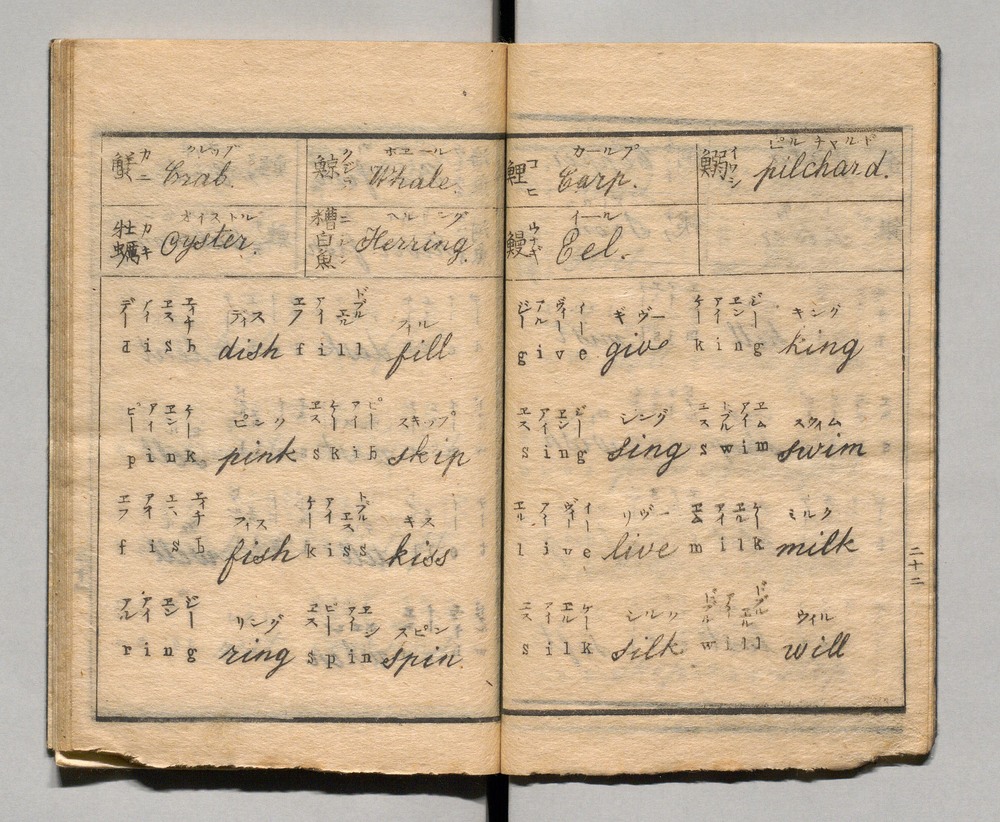 カニ カレッブ クジラ ホエール
蟹 Crab. 鯨 Whale.
カキ オイストル ニシン ヘルリング
牡蠣 Oyster. 糟白魚 Herring.
デー アイ ヱス ヱイチ ディス ヱフ アイ ヱル ドブル フィル
d i s h dish f i l l fill
ピー アイ ヱン ケー ピンク ヱス ケー アイ ピー スキップ
p i n k pink s k i h skip
ヱフ アイ ヱス ヱイチ フィス ケー アイ ヱス ドブル キス
f i s h fish k i s s kiss
アル アイ ヱン ジー リング ヱス ピー アイ ヱン スピン
r i n g ring s p i n spin.
コヒ カールプ イワシ ピルチャルド
鯉 Carp. 鰯 pilchard.
ウナギ イール
鰻 Eel.
ジー アイ ヴィー イー ギヴー ケー アイ ヱン ジー キング
g i v e give k i n g king
ヱス アイ ヱン ジー シング ヱス ドブル アイ ヱム スウィム
s i n g sing s w i m swim
ヱル アイ ヴィー イー リヴー ヱム アイ ヱル ケー ミルク
l i v e live m i l k milk
ヱス アイ ヱル ケー シルク ドブル アイ ヱル ドブル ウィル
s i l k silk w i l l will
二十二